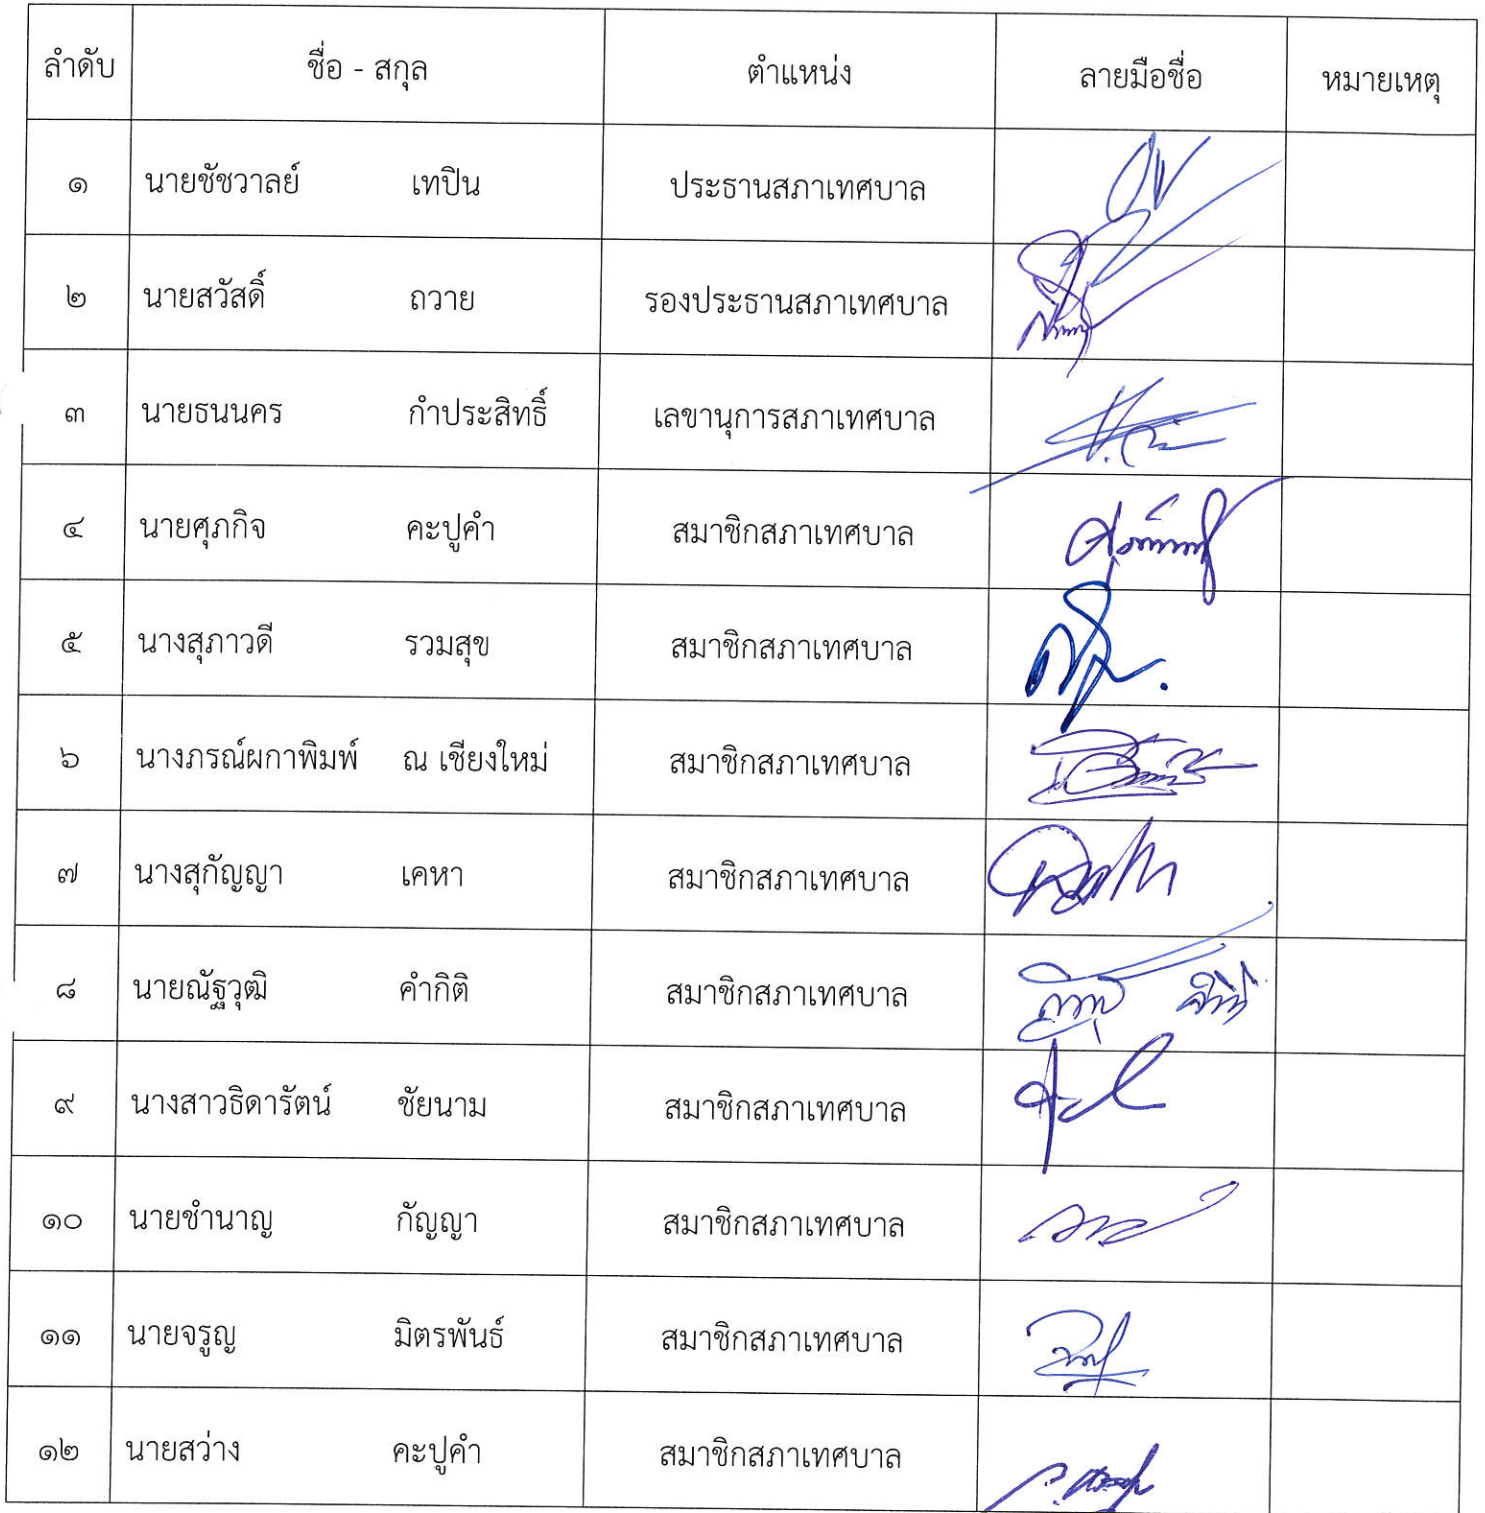 ลำดับ ชื่อ - สกุล ตำแหน่ง ลายมือชื่อ หมายเหตุ
๑ นายชัชวาลย์ เทปิน ประธานสภาเทศบาล
๒ นายสวัสดิ์ ถวาย รองประธานสภาเทศบาล
๓ นายธนนคร กำประสิทธิ์ เลขานุการสภาเทศบาล
๔ นายศุภกิจ คะปูคำ สมาชิกสภาเทศบาล
๕ นางสุภาวดี รวมสุข สมาชิกสภาเทศบาล
๖ นางภรณ์ผกาพิมพ์ ณ เชียงใหม่ สมาชิกสภาเทศบาล
๗ นางสุกัญญา เคหา สมาชิกสภาเทศบาล
๘ นายณัฐวุฒิ คำกิติ สมาชิกสภาเทศบาล
๙ นางสาวธิดารัตน์ ชัยนาม สมาชิกสภาเทศบาล
๑๐ นายชำนาญ กัญญา สมาชิกสภาเทศบาล
๑๑ นายจรูญ มิตรพันธ์ สมาชิกสภาเทศบาล
๑๒ นายสว่าง คะปูคำ สมาชิกสภาเทศบาล